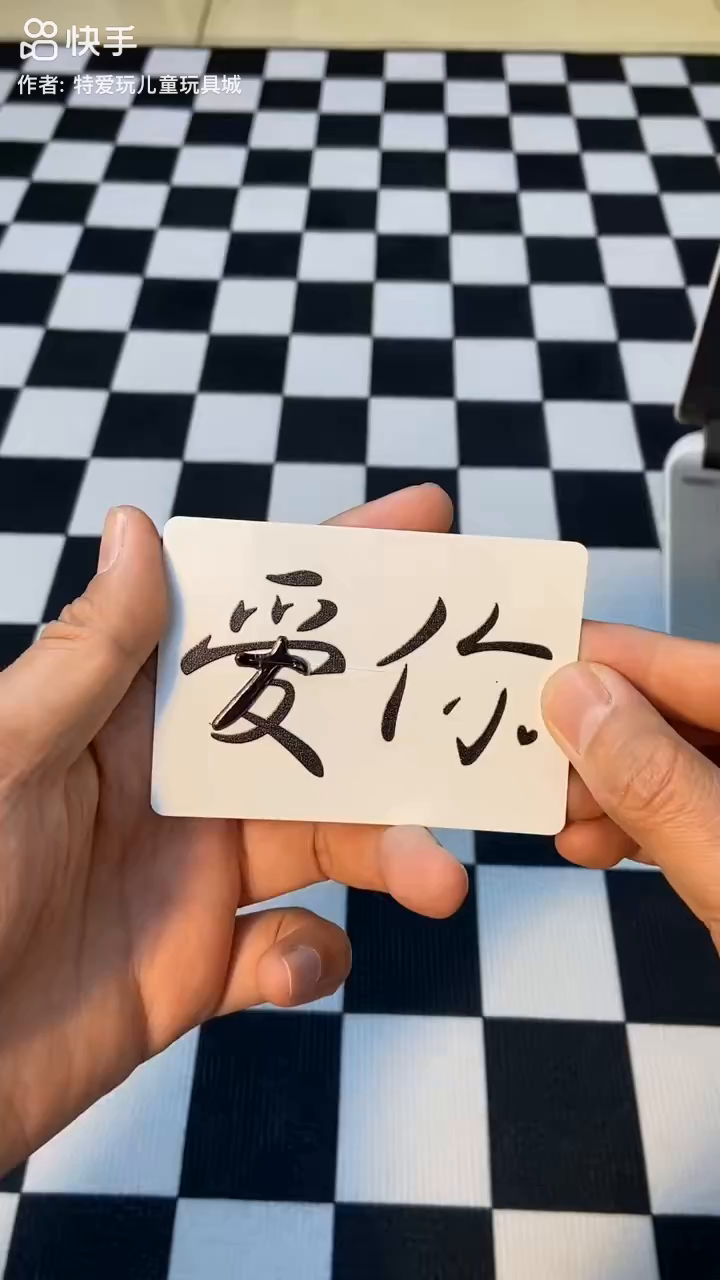 快手
作者: 特爱玩儿童玩具城
爱你